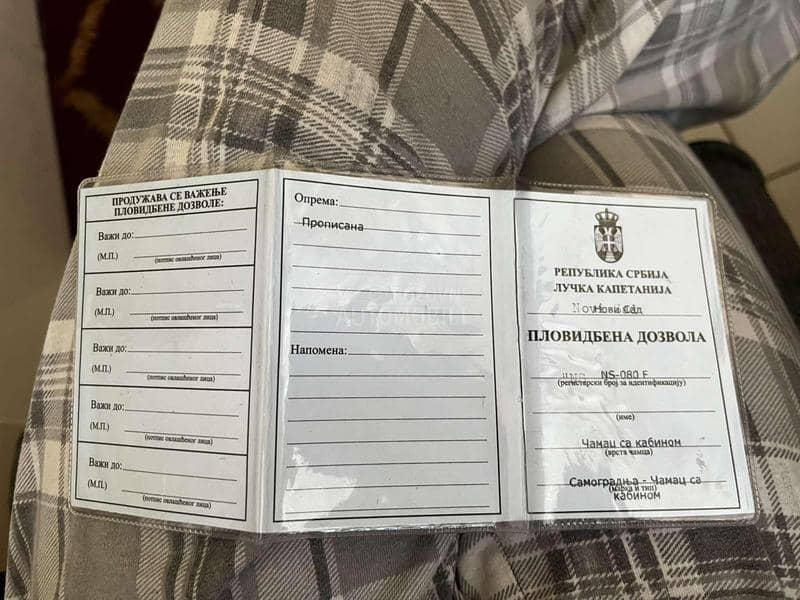 ПРОДУЖАВА СЕ ВАЖЕЊЕ
ПЛОВИДБЕНЕ ДОЗВОЛЕ:
Важи до:
(М.П.)
(потпис овлашћеног лица)
Важи до:
(М.П.)
(потпис овлашћеног лица)
Важи до:
(М.П.)
(потпис овлашћеног лица)
Важи до:
(М.П.)
(потпис овлашћеног лица)
Важи до:
(М.П.)
(потпис овлашћеног лица)
Опрема:
Прописана
Напомена:
РЕПУБЛИКА СРБИЈА
ЛУЧКА КАПЕТАНИЈА
Нови Сад
ПЛОВИДБЕНА ДОЗВОЛА
NS-080 F
(регистарски број за идентификацију)
(име)
Чамац са кабином
(врста чамца)
Самоградња - Чамац са
(марка и тип)
кабином